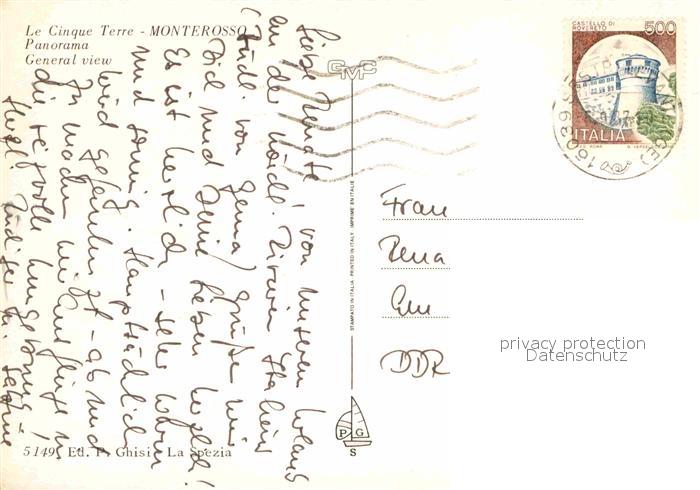 Le Cinque Terre - MONTEROSSO
Panorama
General view
GMC
Liebe Renate! von unserem Urlaub
an der nördl. Riviera Italiens
(südl. von Genua) grüßen wir
Dich und Deine Lieben herzlich!
Es ist herrlich - sehr warm
und sonnig. Hauptsächlich
wird gefaulenzt - ab und
zu machen wir Ausflüge in
die reizvolle Umgebung!
5149 Ed. P. Ghisi - La Spezia
STAMPATO IN ITALIA - PRINTED IN ITALY - IMPRIMÉ EN ITALIE
P G
S
CASTELLO DI
ROVERETO
500
ITALIA
Frau
DDR
privacy protection
Datenschutz